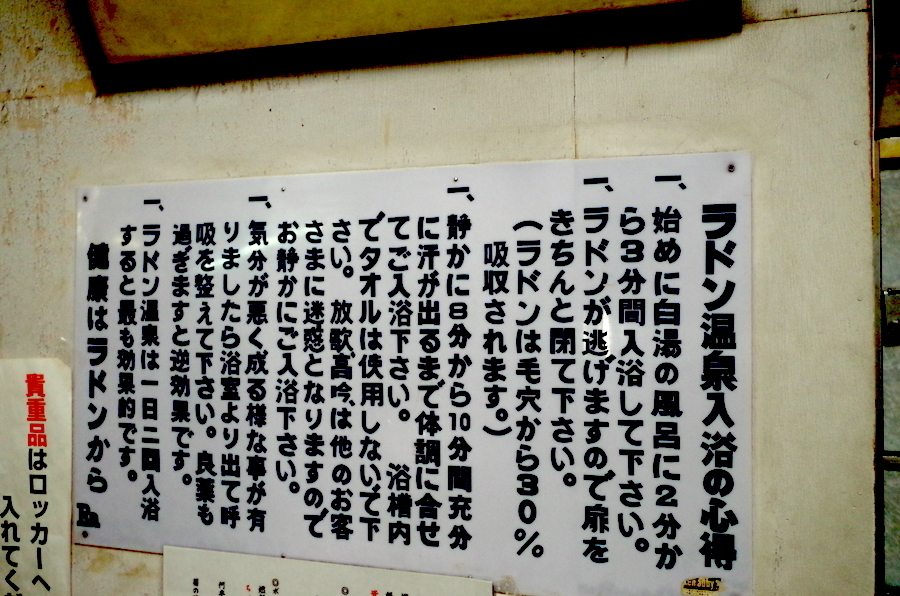 ラドン温泉入浴の心得
一、始めに白湯の風呂に2分か
ら3分間入浴して下さい。
一、ラドンが逃げますので扉を
きちんと閉て下さい。
（ラドンは毛穴から30％
吸収されます。）
一、静かに8分から10分間充分
に汗が出るまで体調に合せ
てご入浴下さい。 浴槽内
でタオルは使用しないで下
さい。放歌高吟は他のお客
さまに迷惑となりますので
お静かにご入浴下さい。
一、気分が悪く成る様な事が有
りましたら浴室より出て呼
吸を整えて下さい。良薬も
過ぎますと逆効果です。
一、ラドン温泉は一日二回入浴
すると最も効果的です。
健康はラドンから
Rn
貴重品はロッカーへ
入れてく